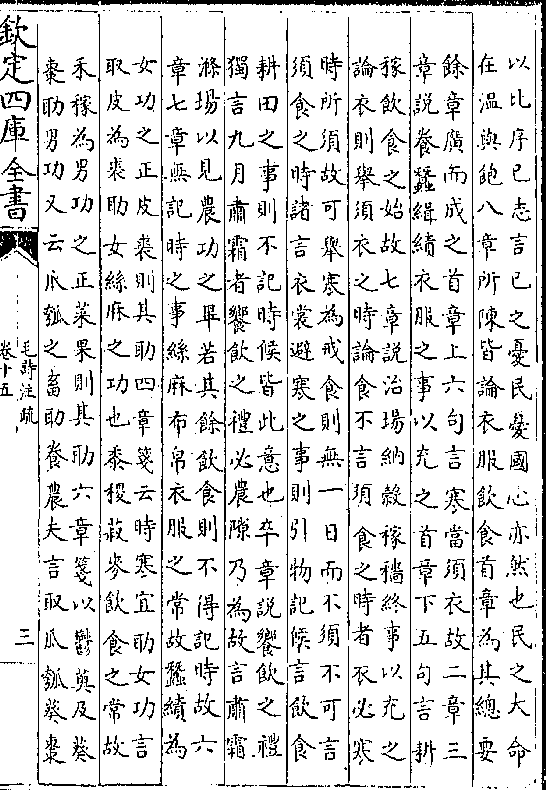 以比序已志言已之憂民憂國心亦然也民之大命
在溫與飽八章所陳皆論衣服飲食首章為其總要
餘章廣而成之首章上六句言寒當須衣故二章三
章說養蠶緝績衣服之事以充之首章下五句言耕
稼飲食之始故七章說治場納穀稼穡終事以充之
論衣則舉須衣之時論食不言須食之時者衣必寒
時所須故可舉寒為戒食則無一日而不須不可言
須食之時諸言衣裳避寒之事則引物記候言飲食
耕田之事則不記時候皆此意也卒章說饗飲之禮
獨言九月肅霜者饗飲之禮必農隙乃為故言肅霜
滌場以見農功之畢若其餘飲食則不得記時故六
章七章無記時之事絲麻布帛衣服之常故蠶績為
女功之正皮裘則其助四章箋云時寒宜助女功言
取皮為裘助女絲麻之功也黍稷菽麥飲食之常故
禾稼為男功之正菜果則其助六章箋以鬱薁及葵
棗助男功又云瓜瓠之畜助養農夫言取瓜瓠葵棗
欽定四庫全書
毛詩注疏
卷十五
三